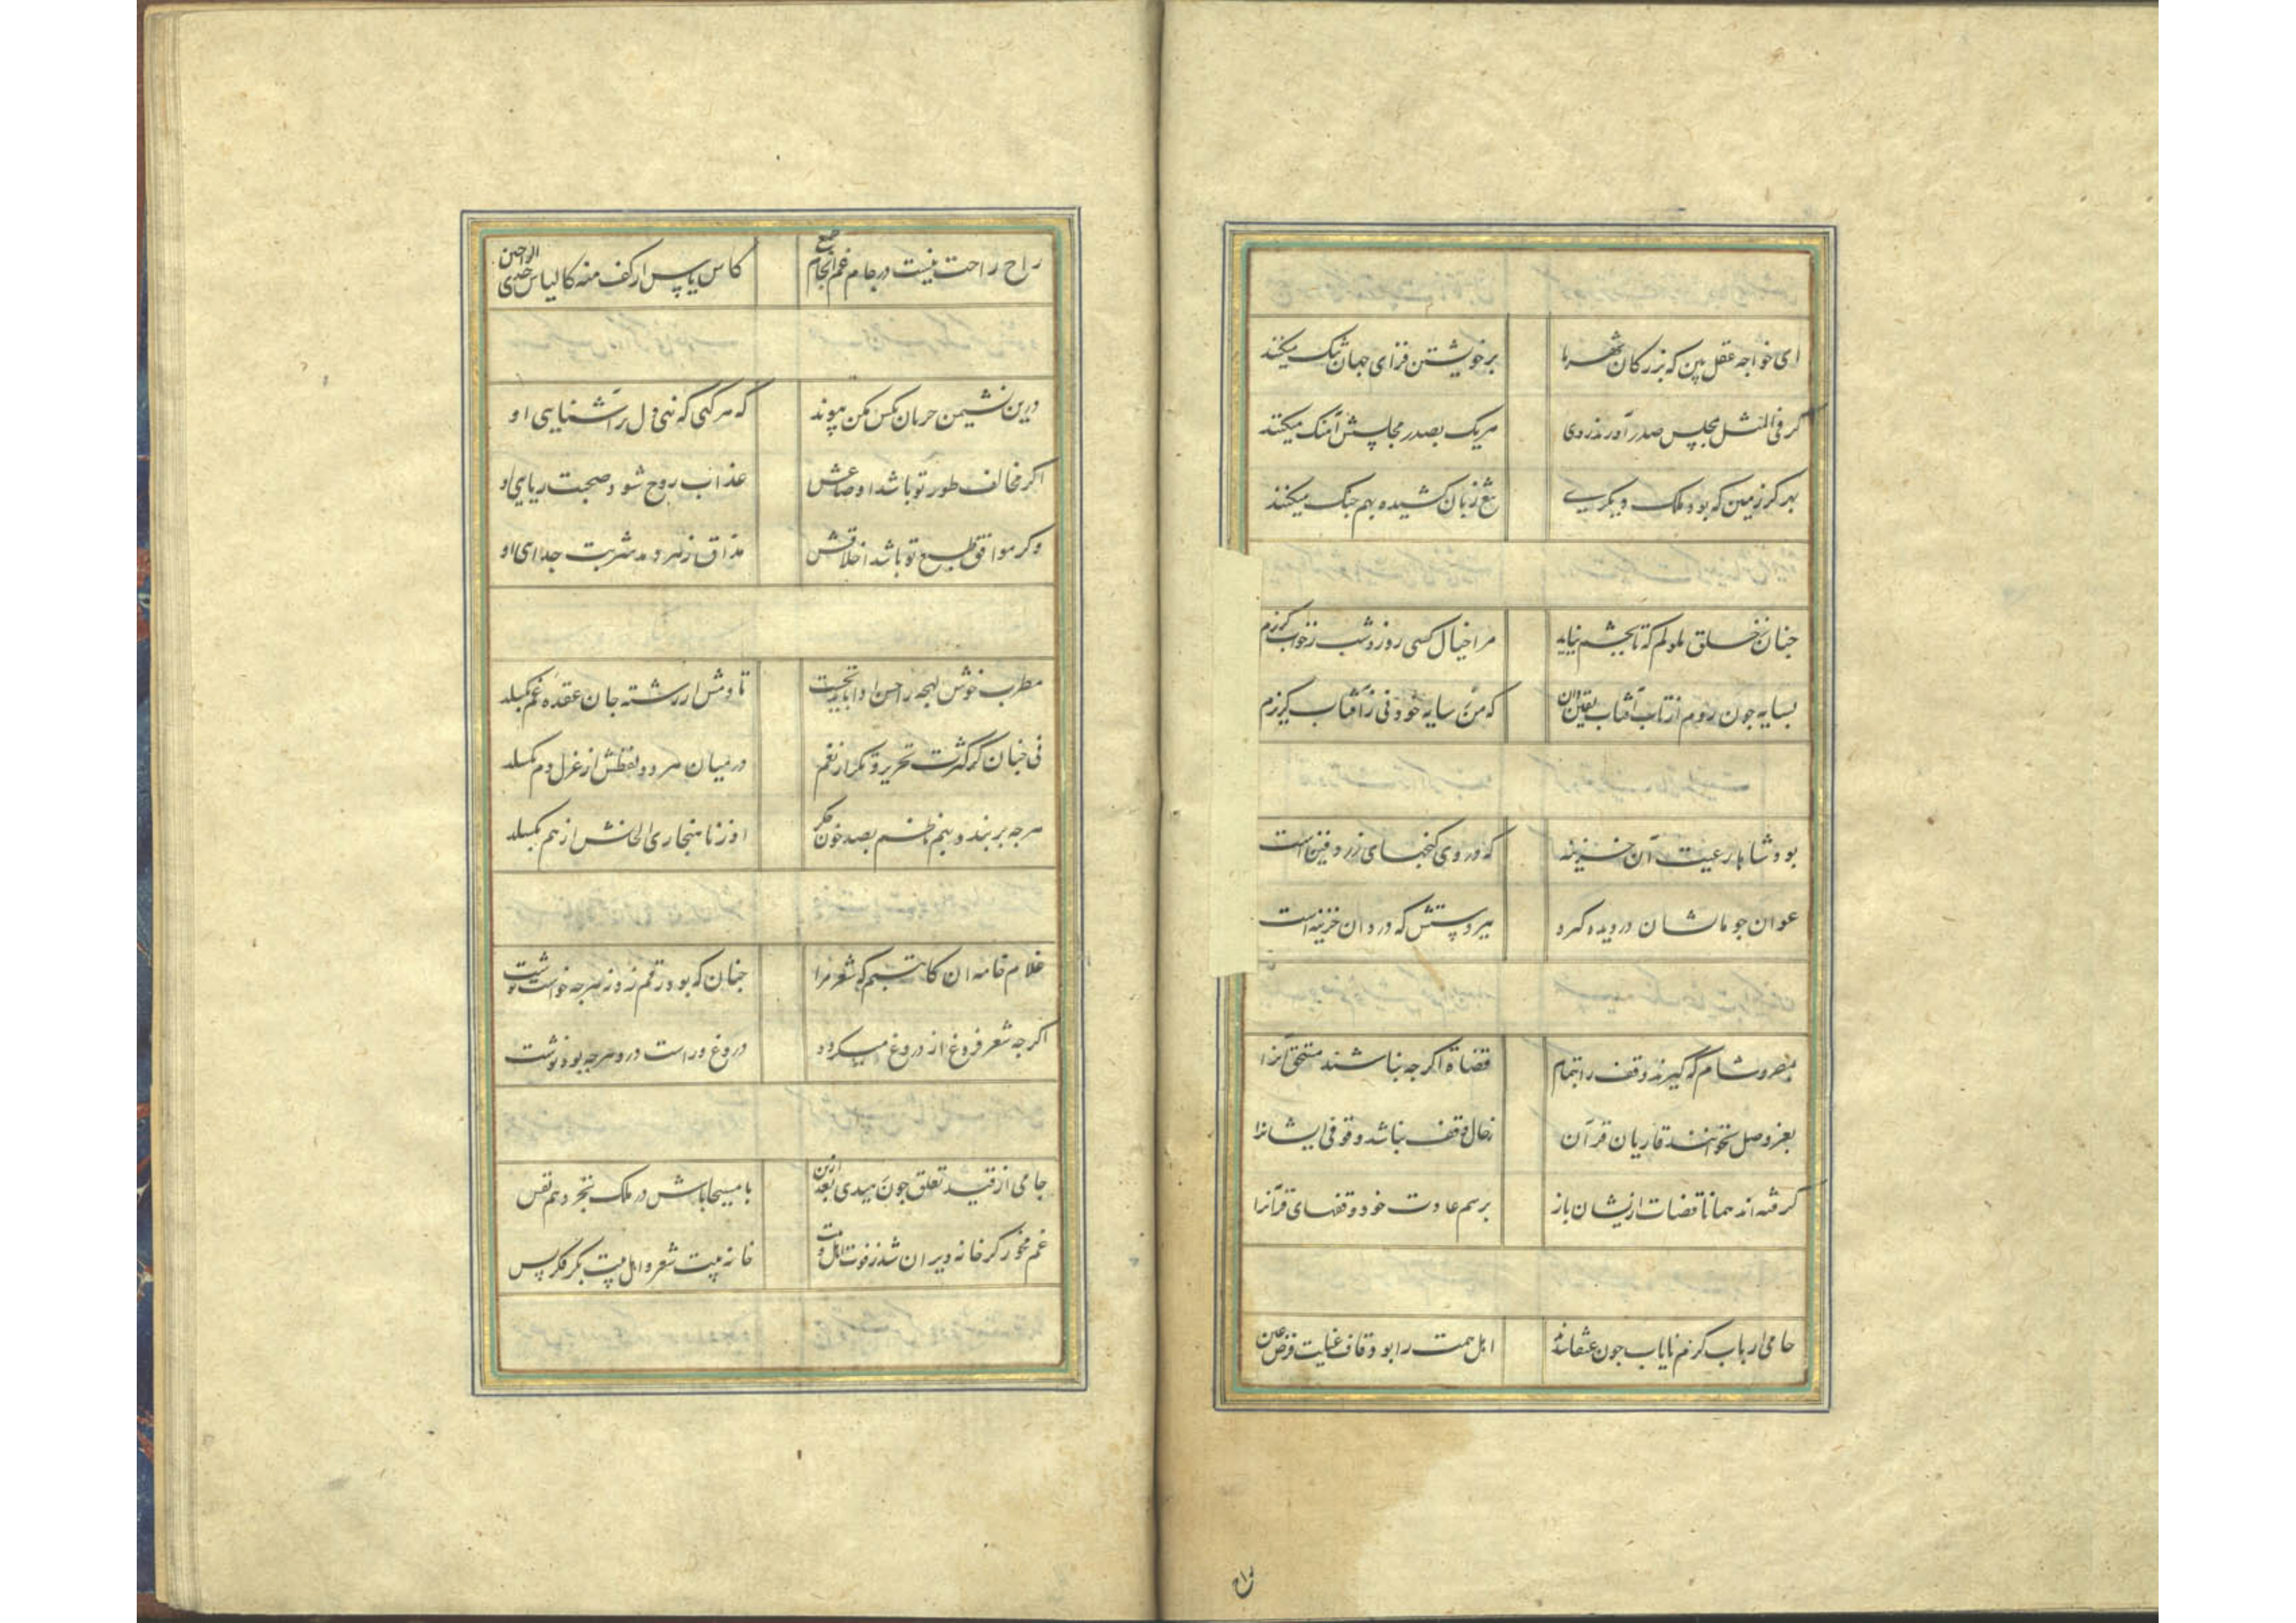 ای خواجه عقل بین که بزرکان شهر ما برخویشتن فزای جهان تنک میکنند
کر فی المثل بمجلس صدر آورند روی هریک بصدر مجلسش آهنک میکنند
بهر کز زمین که بود ملک دیکری تیغ زبان کشیده بهم جنک میکنند
جنان ز خلق ملولم که تا بجشم نیاید مرا خیال کسی روز و شب ز خواب کریزم
بسایه جون روم از تاب آفتاب یقین دان که من ز سایه خود نی ز آفتاب کریزم
بود شاها رعیت آن خزینه که در وی کنجهای زر دفین است
عوان جو ماشان در دیده کرد بیرو پستش که دردان خزینه است
بمصر و شام که کیرند وقف را بتمام قضاة اکرجه نباشند مستحق آنرا
بغیر وصل نخوانند قاریان قرآن ز حال وقف نباشد وقوفی ایشانرا
کرفته اند همانا قضات ازیشان باز برسم عادت خود وقفهای قرآنرا
جامی ارباب کرم نایاب جون عنقا شدند اهل همت را بود قاف عنایت فرض عین
راح راحت نیست در جام غم انجام طمع کاس یاس از کف منه کالیاس احدی الراحتین
درین نشیمن حرمان بکس مکن پیوند که مرکی که نهی دل بر آشنایی او
اکر مخالف طور تو باشد اوضاعش عذاب روح شود صحبت ریایی او
وکر موافق طبع تو باشد اخلاقش مذاق زهر دهد شربت جدایی او
مطرب خوش لهجه را حسن ادا باید نخست تا دمش از رشته جان عقده غم بکسلد
نی جنان کز کثرت تحریر و تکرار نغم در میان هر دو لفظش از غزل دم بکسلد
هرجه بربندد بنم ناظم بصد خون جکر او ز ناهنجاری الحانش از هم بکسلد
غلام خامه آن کاتبم که شعر مرا جنان که بود رقم زد نه هرجه خواست نوشت
اکرجه شعر فروغ از دروغ میکیرد دروغ و راست درو هرجه بود نوشت
جامی از قید تعلق جون رهیدی بعد ازین با مسیحا باش در ملک تجرد هم نفس
غم مخور کر خانه ویران شد ز فوت اهل بیت خانه بیت شعر و اهل بیت بکر فکر بس